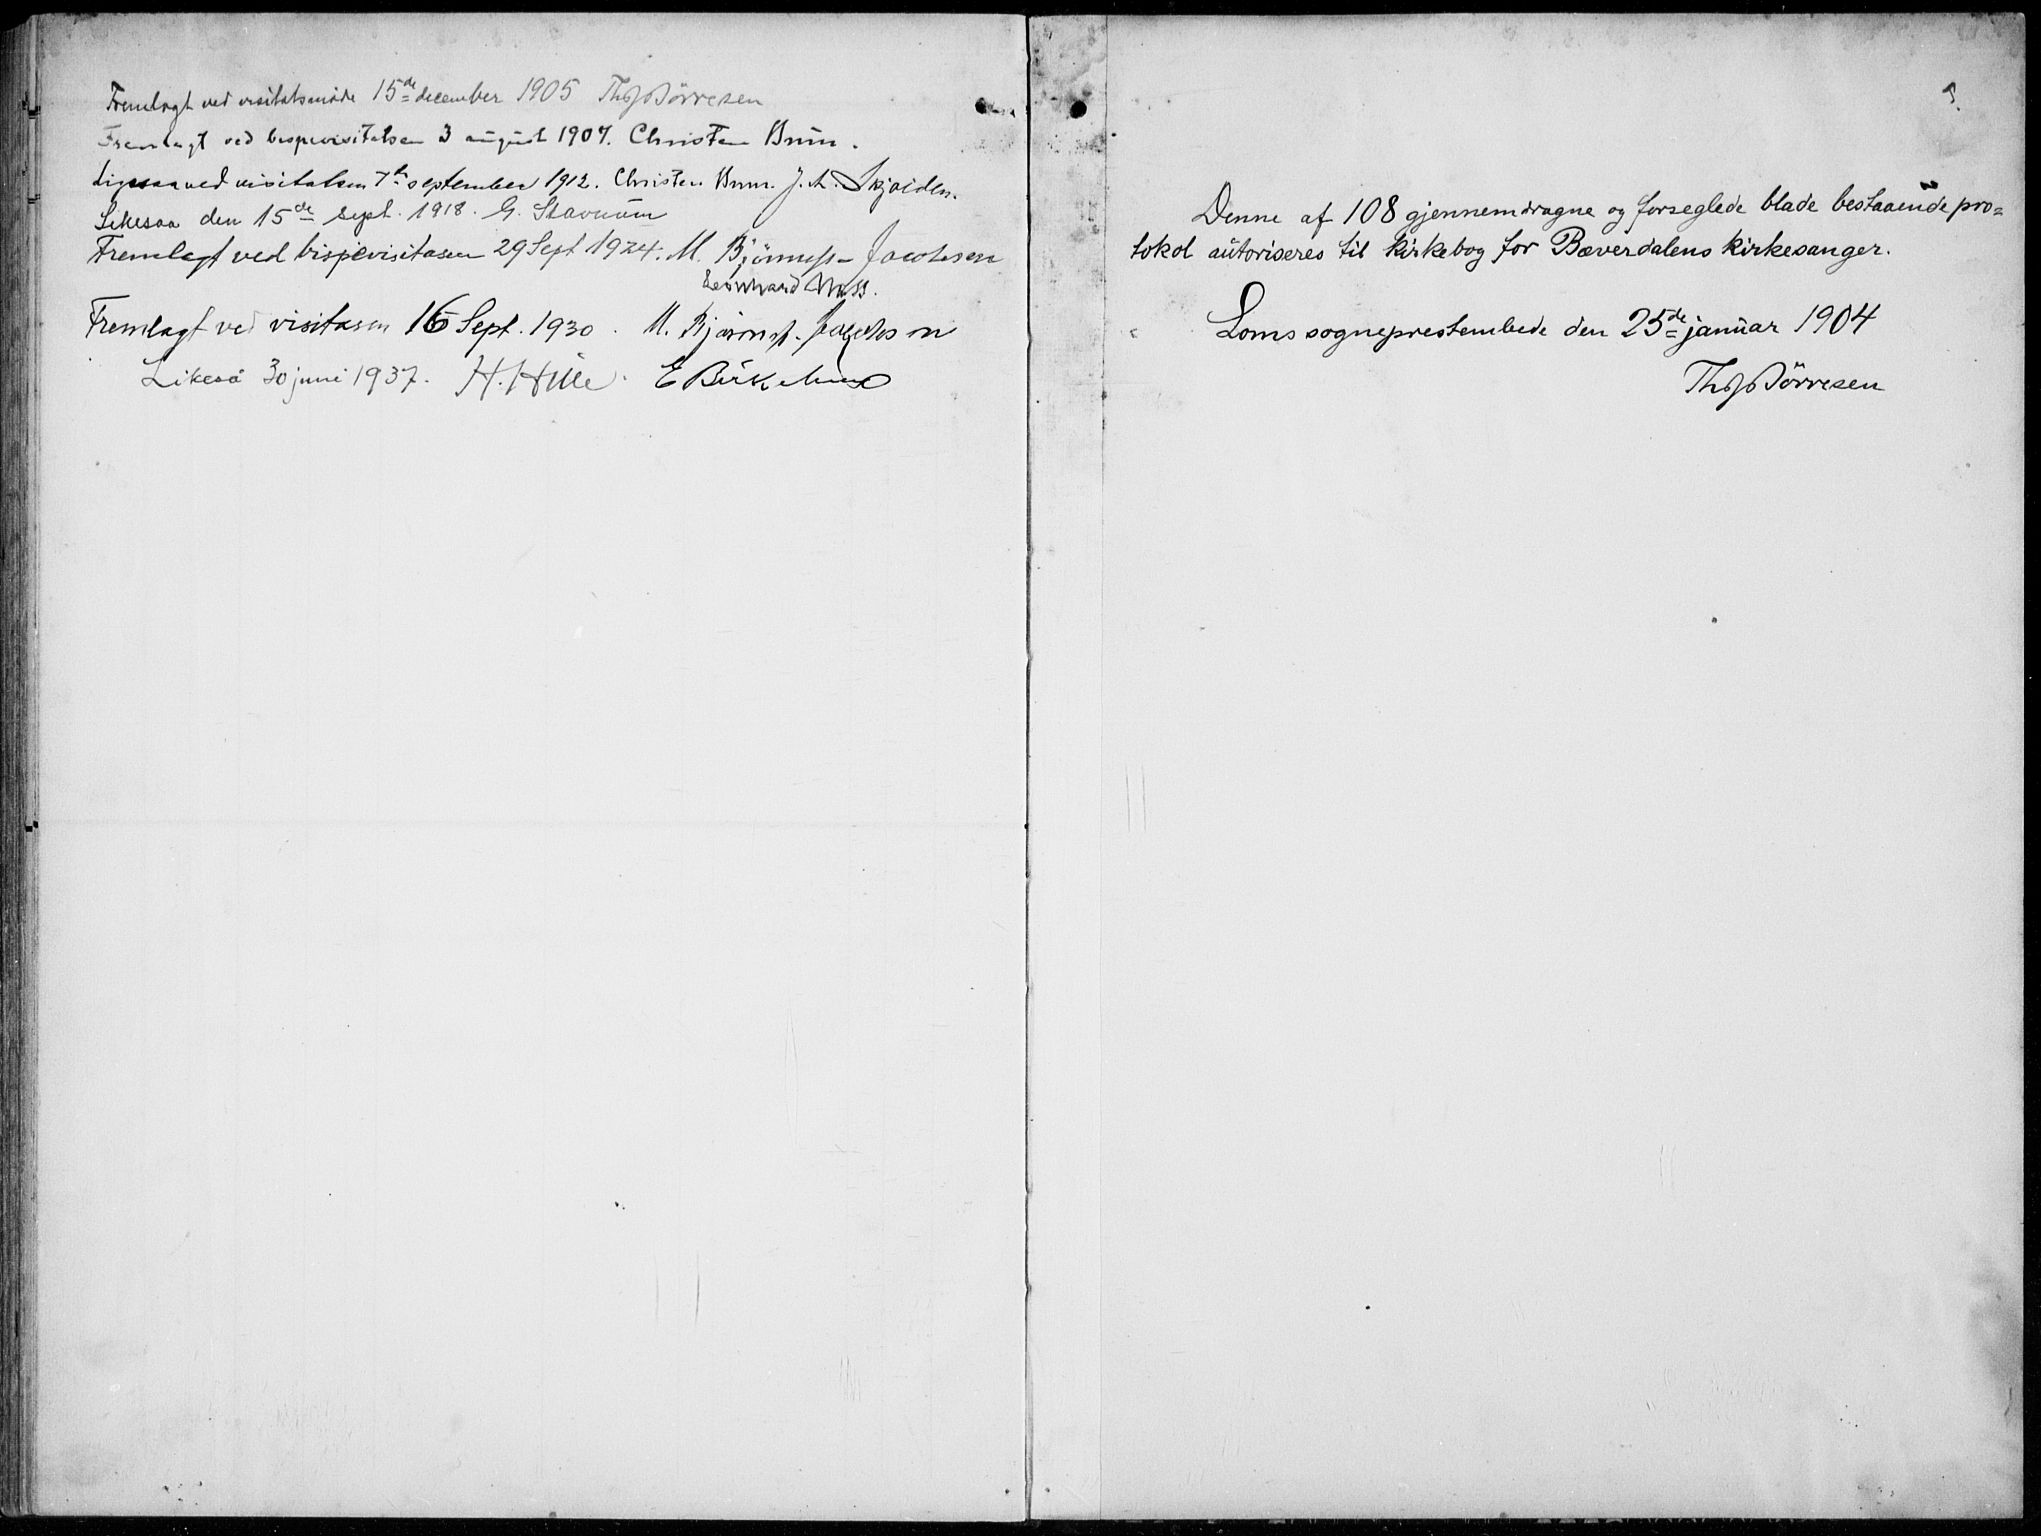 Fremlagt ved visitatsmøde 15de december 1905 Th J Børresen
Fremlagt ved bispevisitatsen 3 august 1907. Christen Brun.
Ligesaa ved visitatsen 7de september 1912. Christen Brun. J. A. Skjolden.
Likesaa den 15de sept. 1918. G. Stavnum
Fremlagt ved bispevisitasen 29 Sept 1924. M. Bjønness-Jacobsen
Leonhard Næss.
Fremlagt ved visitasen 16 Sept. 1930. M. Bjønness-Jacobsen
Likeså 30 juni 1937. H. Hille. E Birkelund
Denne af 108 gjennemdragne og forseglede blade bestaaende pro=
tokol autoriseres til kirkebog for Bæverdalens kirkesanger.
Loms sogneprestembede den 25de januar 1904
Th J Børresen